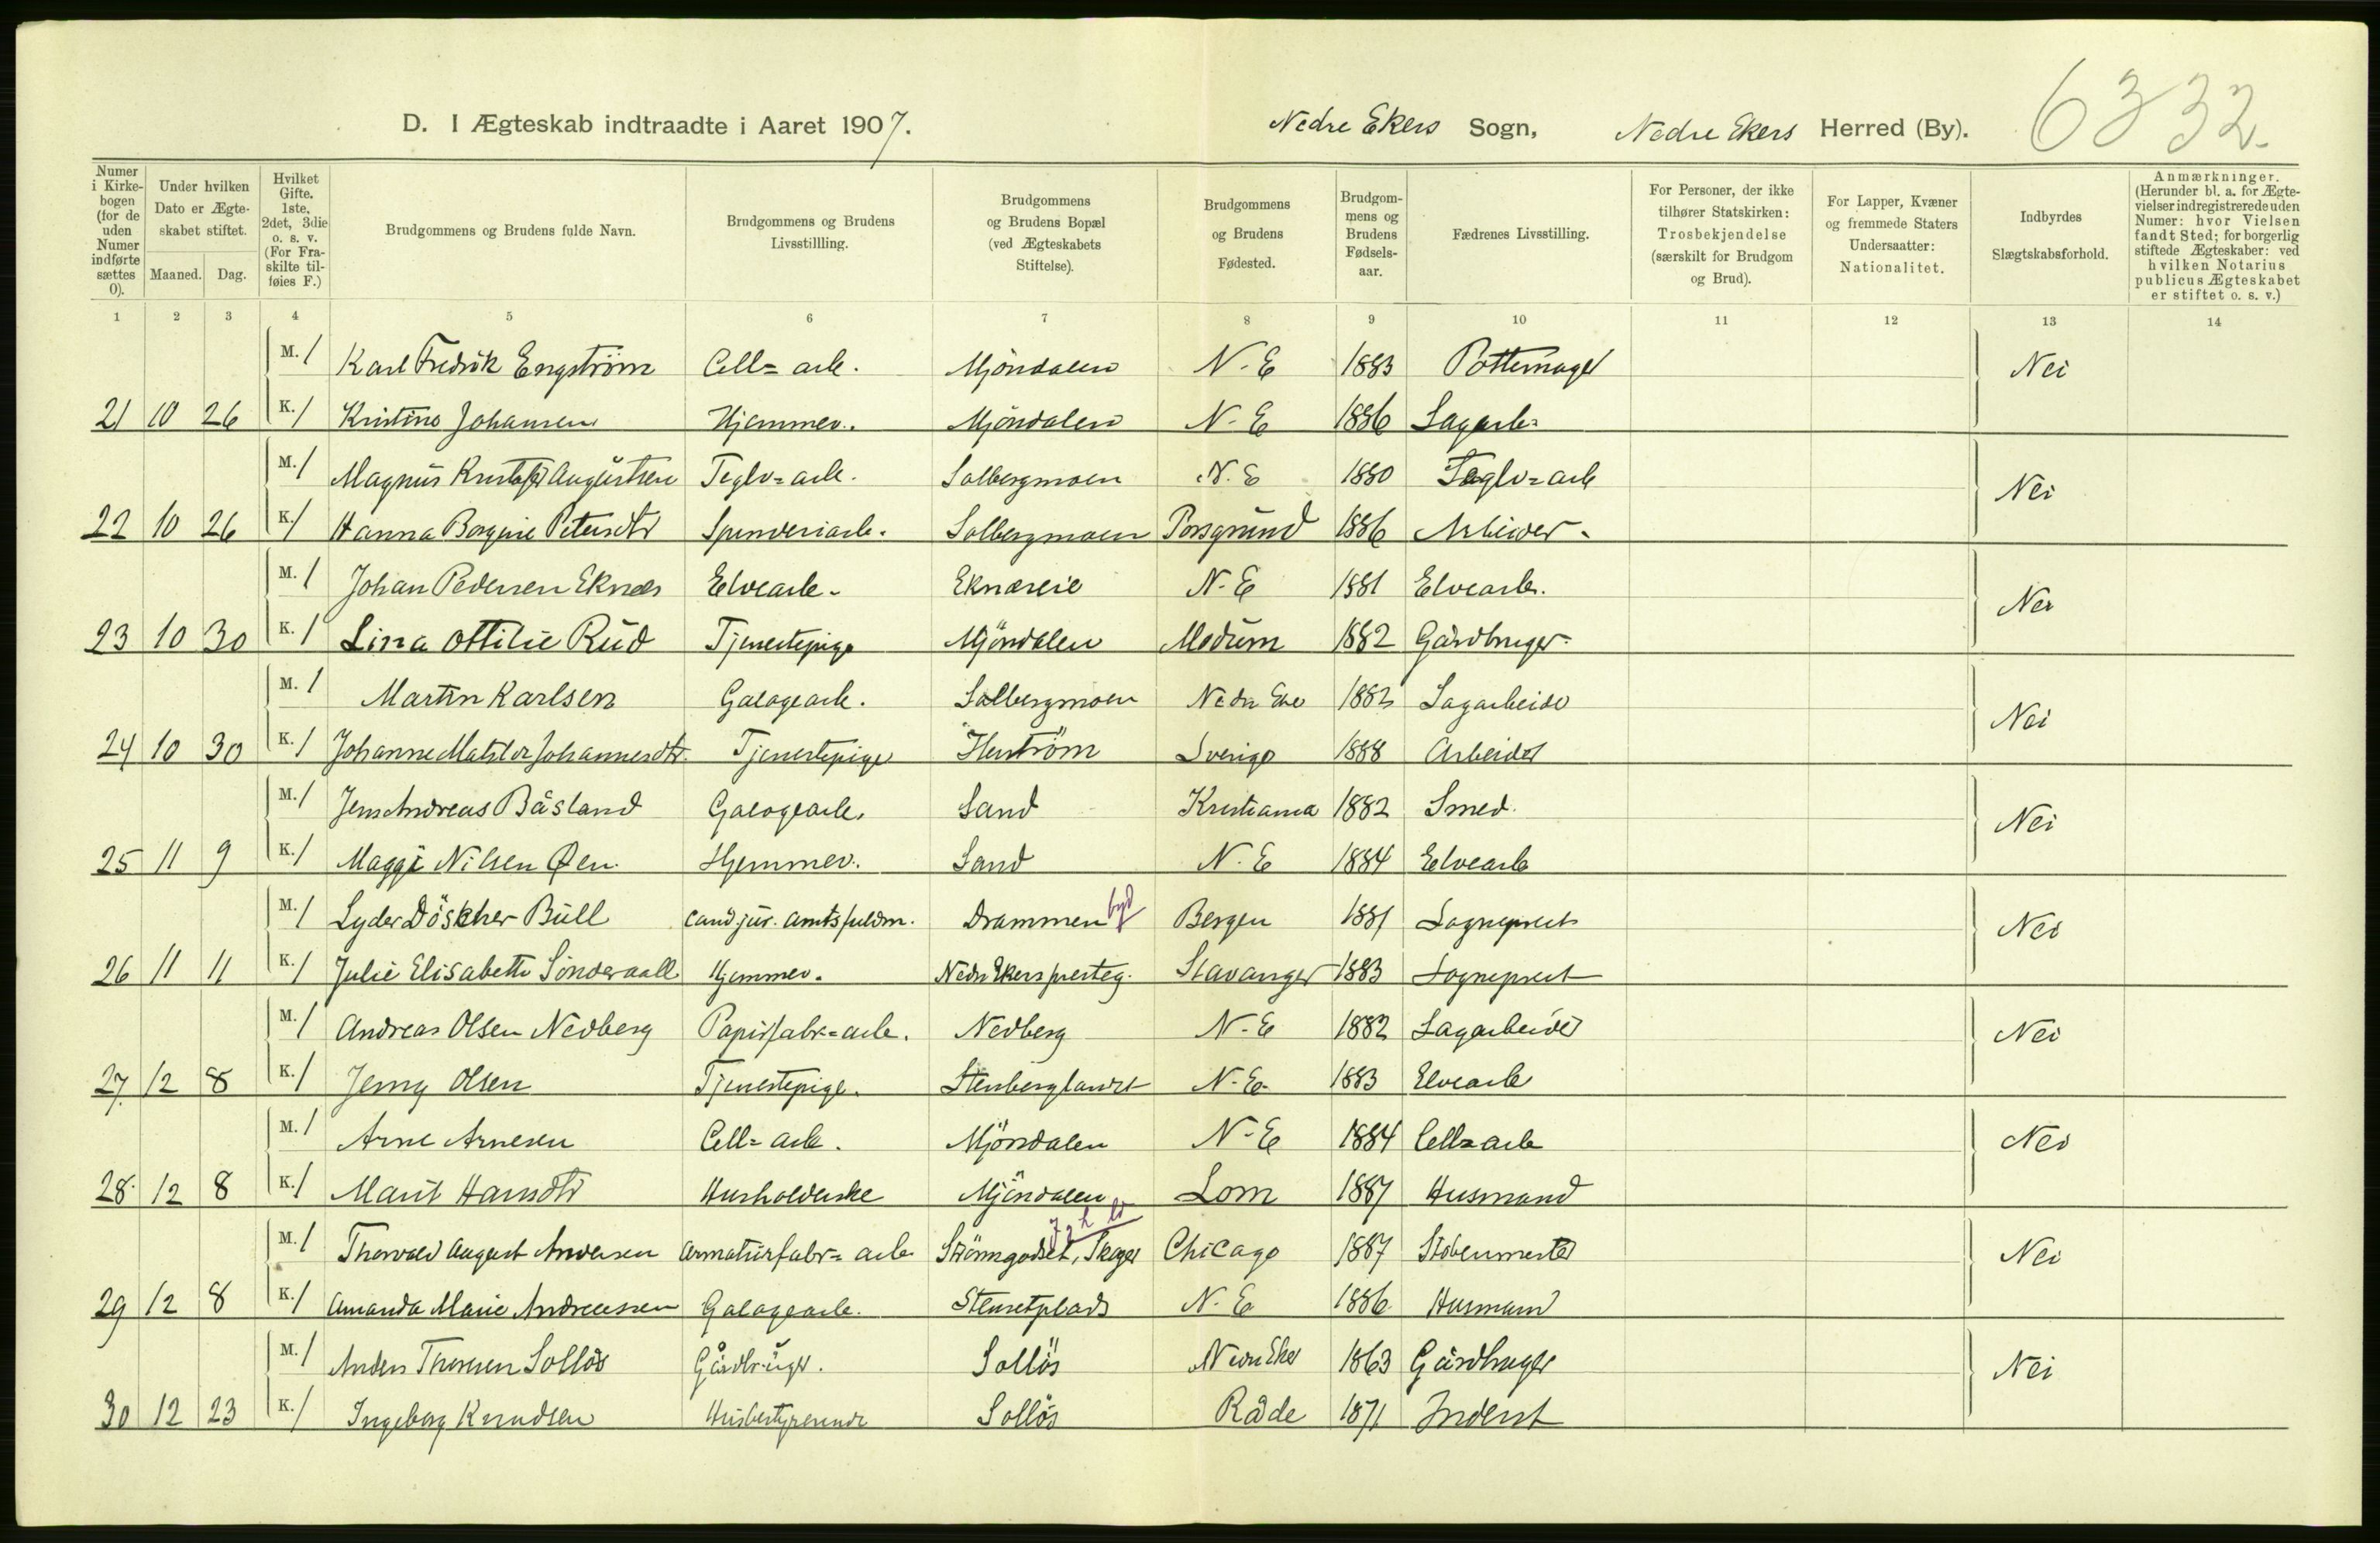 D. I Ægteskab indtraadte i Aaret 1907. Nedre Ekers Sogn, Nedre Ekers Herred (By). 6332.
Numer i Kirke- bogen (for de uden Numer indførte sættes 0).
Under hvilken Dato er Ægte- skabet stiftet.
Maaned. Dag.
Hvilket Gifte. 1ste, 2det, 3die o. s. v. (For Fra- skilte til- føies F.)
Brudgommens og Brudens fulde Navn.
Brudgommens og Brudens Livsstillling.
Brudgommens og Brudens Bopæl (ved Ægteskabets Stiftelse).
Brudgommens og Brudens Fødested.
Brudgom- mens og Brudens Fødsels- aar.
Fædrenes Livsstilling.
For Personer, der ikke tilhører Statskirken: Trosbekjendelse (særskilt for Brudgom og Brud).
For Lapper, Kvæner og fremmede Staters Undersaatter: Nationalitet.
Indbyrdes Slægtskabsforhold.
Anmærkninger. (Herunder bl. a. for Ægte- vielser indregistrerede uden Numer: hvor Vielsen fandt Sted; for borgerlig stiftede Ægteskaber: ved hvilken Notarius publicus Ægteskabet er stiftet o. s. v.)
1 2 3 4 5 6 7 8 9 10 11 12 13 14
M. 1 Karl Fredrik Engström Cell= arb. Mjöndalen N. E 1883 Pottemager Nei
21 10 26 K. 1 Kristine Johansen Hjemmev. Mjöndalen N. E 1886 Sagarb.
M. 1 Magnus Kristofer Augustsen Teglv= arb. Solbergmoen N. E 1880 Teglv= arb Nei
22 10 26 K. 1 Hanna Petersdtr Spinderiarb. Solbergmoen Porsgrund 1886 Arbeider.
M. 1 Johan Pedersen Eknæs Elvearb. Eknæseie N. E 1881 Elvearb. Nei
23 10 30 K. 1 Lina Ottilie Rud Tjenestepige Mjöndalen Modum 1882 Gårdbruger.
M. 1 Martin Karlsen Galogearb. Solbergmoen Nedre Eker 1882 Sagarbeider Nei
24 10 30 K. 1 Johanne Johannesdtr. Tjenestepige Sverige 1888 Arbeider
M. 1 Jens Andreas Båsland Galogearb. Sand Kristiania 1882 Smed. Nei
25 11 9 K. 1 Maggi Nilsen Øen. Hjemmev. Sand N. E 1884 Elvearb
M. 1 Lyder Döscher Bull cand. jur. amtsfuldm. Drammen byd Bergen 1881 Sogneprest Nei
26 11 11 K. 1 Julie Elisabeth Sönderaall Hjemmev. Nedre Ekers presteg. Stavanger 1883 Sogneprest
M. 1 Andreas Olsen Nedberg Papirfabr= arb. Nedberg N. E 1882 Sagarbeider Nei
27 12 8 K. 1 Jenny Olsen Tjenestepige. N. E. 1883 Elvearb
M. 1 Arne Arnesen Cell= arb. Mjöndalen N. E 1884 Cell= arb Nei
28 12 8 K. 1 Marit Hansdtr Husholderske Mjöndalen Lom 1887 Husmand
M. 1 Thorvald August Andersen Armaturfabr= arb Strömsgodset, Skoger Chicago 1887 Stöbermester Nei
29 12 8 K. 1 Amanda Marie Andreassen Galogearb. Stensetplads N. E 1886 Husmand
M. 1 Anders Thoresen Sollös Gårdbruger. Sollös Nedre Eker 1863 Gårdbruger Nei
30 12 23 K. 1 Ingeborg Knudsen Husbestyrerinde Sollös Råde 1871 Inderst